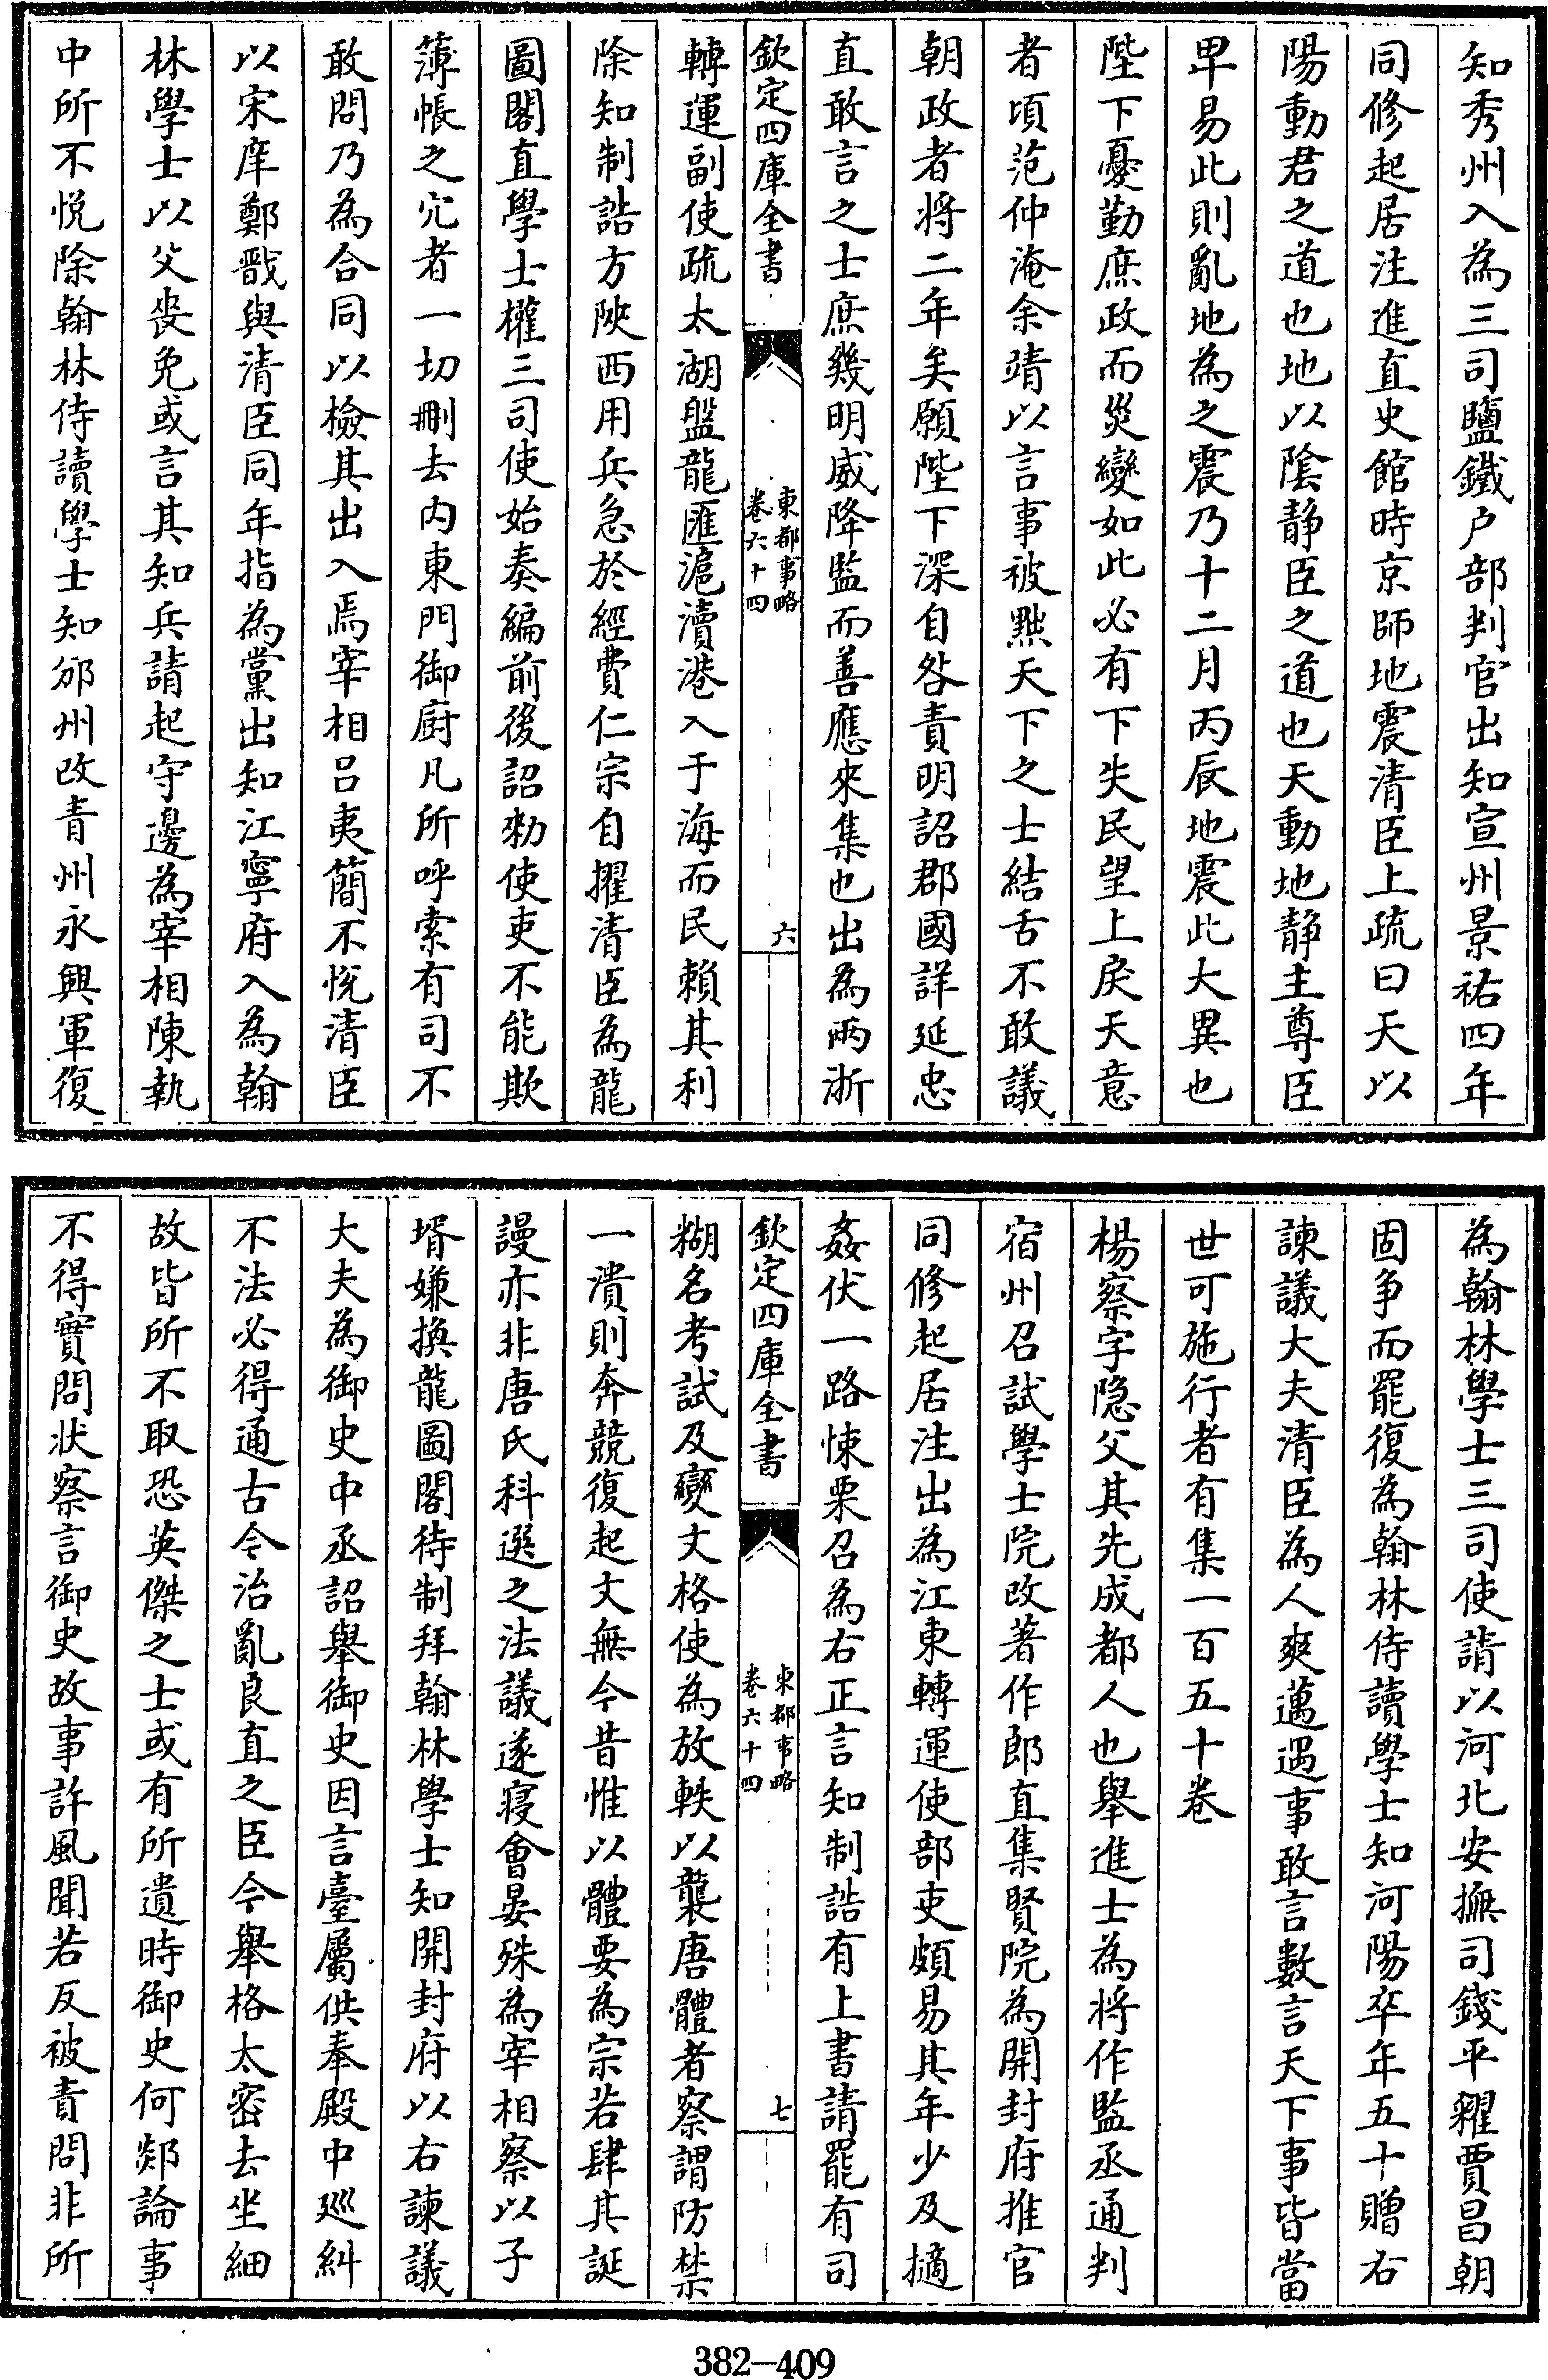 知秀州入為三司鹽鐵户部判官出知宣州景祐四年
同修起居注進直史館時京師地震清臣上疏曰天以
陽動君之道也地以陰静臣之道也天動地静主尊臣
卑易此則亂地為之震乃十二月丙辰地震此大異也
陛下憂勤庶政而災變如此必有下失民望上戾天意
者頃范仲淹余靖以言事被黜天下之士結舌不敢議
朝政者将二年矣願陛下深自咎責明詔郡國詳延忠
直敢言之士庶幾明威降監而善應來集也出為兩浙
欽定四庫全書
東都事略
卷六十四
六
轉運副使疏太湖盤龍匯滬瀆港入于海而民賴其利
除知制誥方陜西用兵急於經費仁宗自擢清臣為龍
圖閣直學士權三司使始奏編前後詔勑使吏不能欺
簿帳之冗者一切刪去内東門御厨凡所呼索有司不
敢問乃為合同以檢其出入焉宰相吕夷簡不悦清臣
以宋庠鄭戩與清臣同年指為黨出知江寧府入為翰
林學士以父喪免或言其知兵請起守邊為宰相陳執
中所不悦除翰林侍讀學士知邠州改青州永興軍復
為翰林學士三司使請以河北安撫司錢平糴賈昌朝
固争而罷復為翰林侍讀學士知河陽卒年五十贈右
諫議大夫清臣為人爽邁遇事敢言數言天下事皆當
世可施行者有集一百五十卷
楊察字隐父其先成都人也舉進士為將作監丞通判
宿州召試學士院改著作郎直集賢院為開封府推官
同修起居注出為江東轉運使部吏頗易其年少及擿
姦伏一路悚栗召為右正言知制誥有上書請罷有司
欽定四庫全書
東都事略
卷六十四
七
糊名考試及變文格使為放軼以襲唐體者察謂防禁
一潰則奔競復起文無今昔惟以體要為宗若肆其誕
謾亦非唐氏科選之法議遂寢會晏殊為宰相察以子
壻嫌換龍圖閣待制拜翰林學士知開封府以右諫議
大夫為御史中丞詔舉御史因言臺屬供奉殿中巡糾
不法必得通古今治亂良直之臣今舉格太密去坐細
故皆所不取恐英傑之士或有所遺時御史何郯論事
不得實問狀察言御史故事許風聞若反被責問非所
382—409